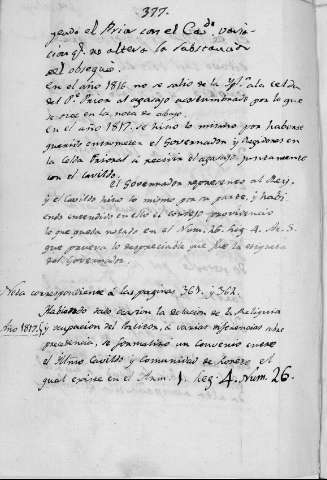 377.
yendo el Prior con el Cav.do varia-
cion q.e no altera la substancia
del obsequio.
En el año 1816 no se salio de la Ygl.a a la celda
del P.e Prior al agasajo acostumbrado por lo que
se dice en la nota de abajo.
En el año 1817. se hizo lo mismo por haberse
querido entrometer el Governador y Regidores en
la Celda Prioral a recibir el agasajo juntamente
con el Cavildo.
El Governador represento al Rey,
y el Cavildo hizo lo mismo por su parte, y habi-
endo entendido en ello el consejo providenció
lo que queda notado en el Num. 26. leg. 4. Ar. S.
que prueva lo despreciable que fue la etiqueta
del Governador.
Nota correspondiente á las paginas 361. y 362.
Año 1817.
Habiendo dado ocasion la Estacion de la Reliquia
y ocupacion del Porticos, á varias diferencias sobre
precedencia, se formalizó un convenio entre
el Yltmo Cavildo y Comunidad de el
qual existe en el Arm. 1. leg. 4. Num. 26.